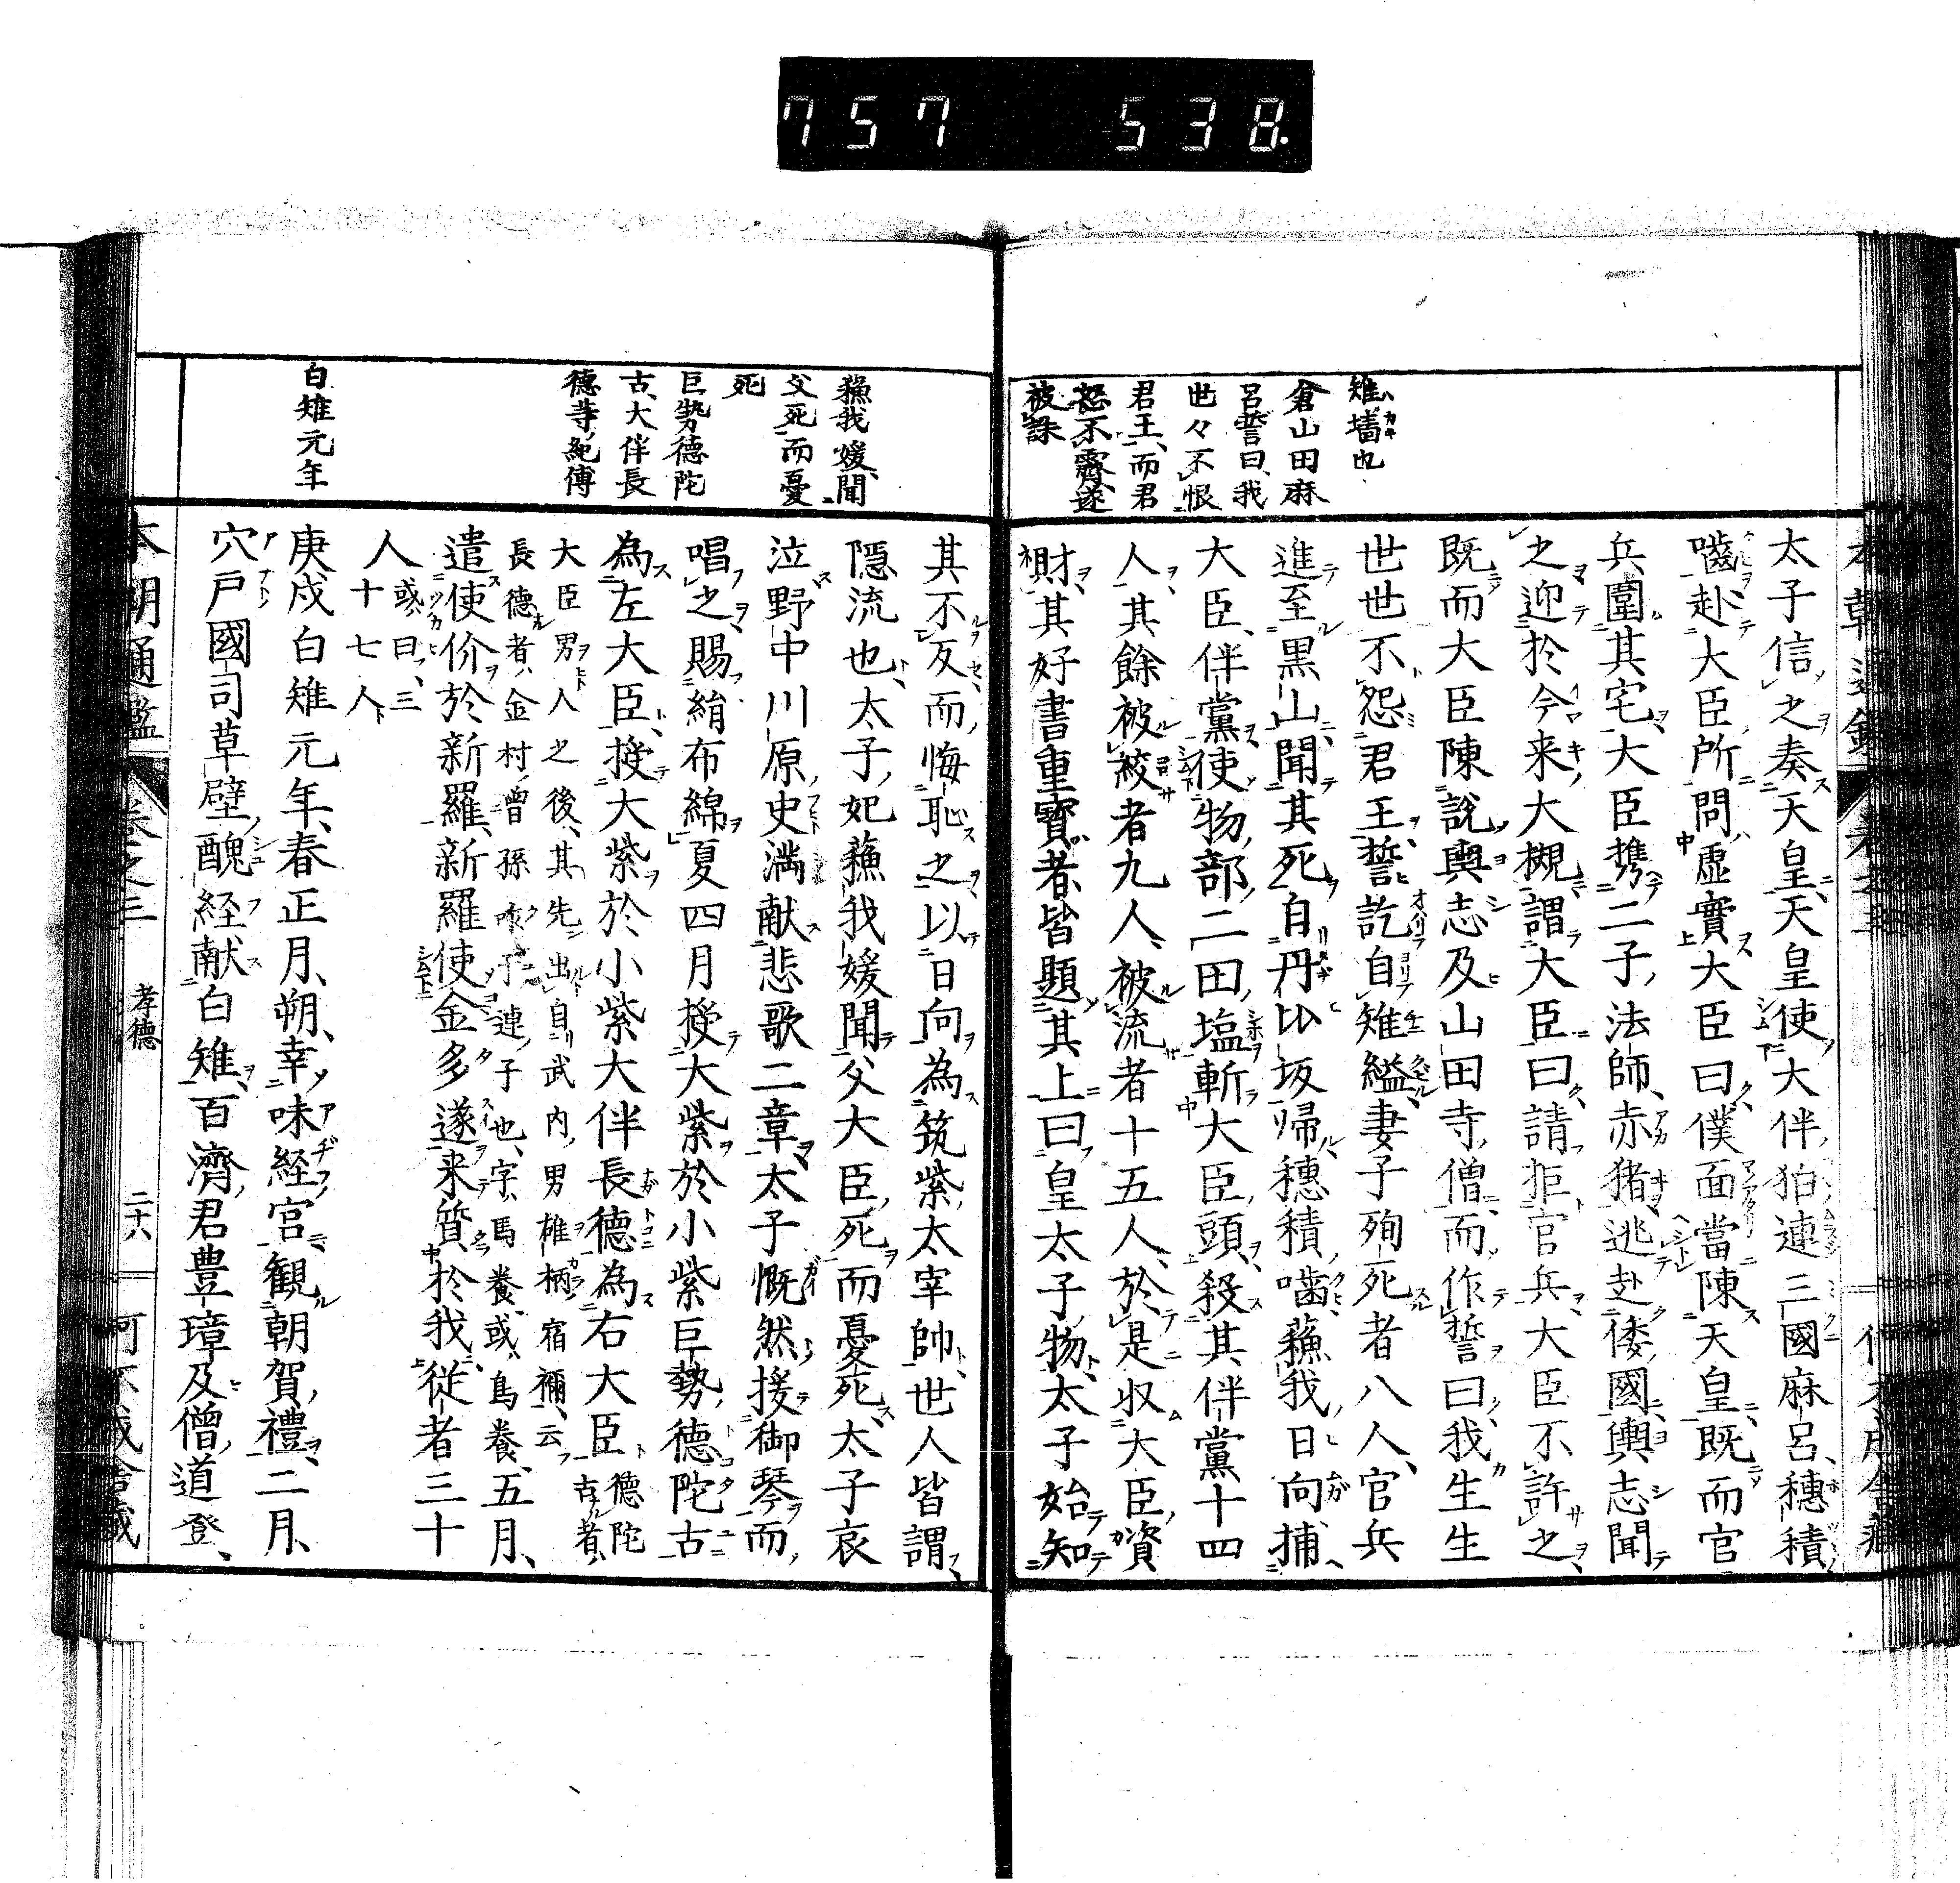 757 538.
雉墻也
倉山田麻
呂誓曰我
世々不恨
君王而君
怒不霽遂
被誅
太子信之奏天皇天皇使大伴狛連三國麻呂穗積
嚙赴大臣所問虛實大臣曰僕面當陳天皇既而官
兵圍其宅大臣携二子法師赤猪逃赴倭國輿志聞
之迎於今来大槻謂大臣曰請拒官兵大臣不許之
既而大臣陳說輿志及山田寺僧而作誓曰我生生
世世不怨君王誓訖自雉縊妻子殉死者八人官兵
進至黒山聞其死自丹比坂帰穗積嚙蘓我日向捕
大臣伴黨使物部二田塩斬大臣頭殺其伴黨十四
人其餘被絞者九人被流者十五人於是収大臣資
財其好書重寳者皆題其上曰皇太子物太子始知
蘓我媛聞
父死而憂
死
巨勢德陀
古大伴長
德等紀傳
白雉元年
其不反而悔恥之以日向為筑紫太宰帥世人皆謂
隠流也太子妃蘓我媛聞父大臣死而憂死太子哀
泣野中川原史満献悲歌二章太子慨然援御琴而
唱之賜絹布綿夏四月授大紫於小紫巨勢德陀古
為左大臣授大紫於小紫大伴長德為右大臣德陀古者
大臣男人之後其先出自武内男椎柄宿禰云
長德者金村曽孫咋子連子也字馬養或鳥養五月
遣使价於新羅新羅使金多遂来質於我従者三十
人或曰三十七人
庚戌白雉元年春正月朔幸味経宮観朝賀禮二月
穴戸國司草壁醜経献白雉百濟君豊璋及僧道登
本朝通鑑 卷之三 孝德 二十八